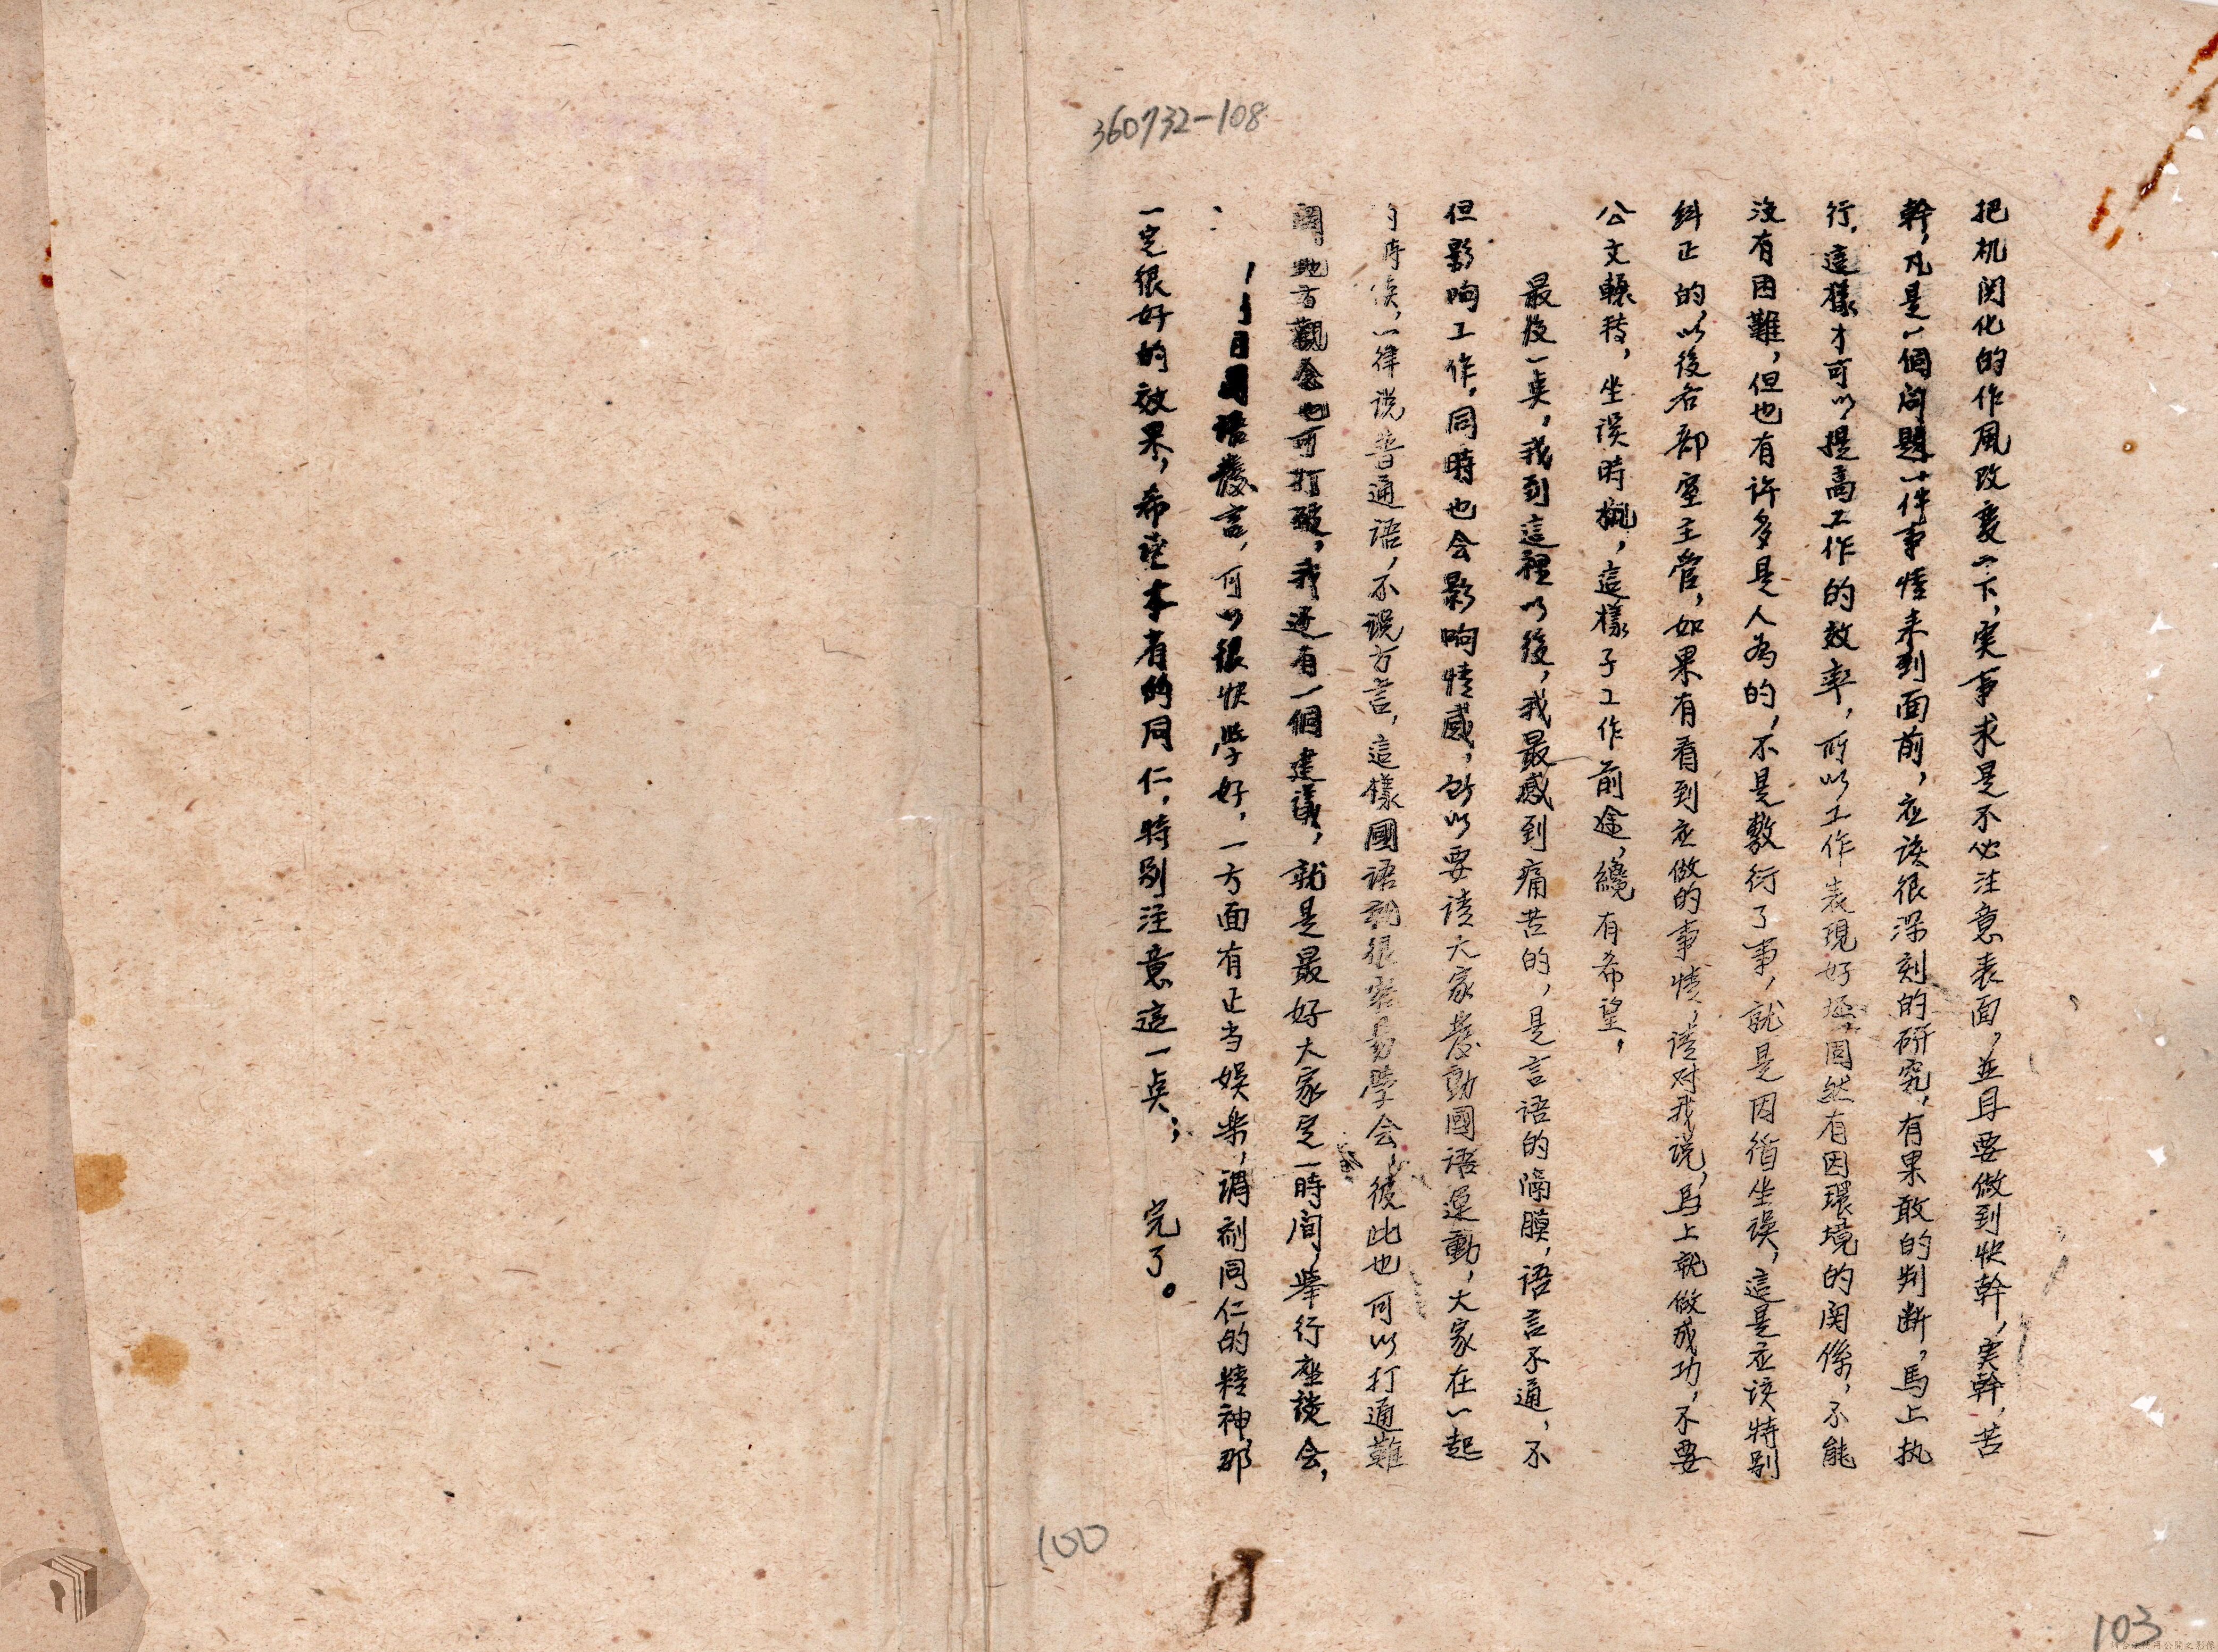 360732-108
把机関化的作風改变一下,実事求是不必注意表面,並且要做到快幹,実幹,苦
幹,凡是一個問題一件事情来到面前,应该很深刻的研究,有果敢的判断,馬上执
行,這樣才可以提高工作的效率,所以工作表現好坯,固然有因環境的関係,不能
没有困難,但也有许多是人為的,不是敷衍了事,就是因循坐误,這是应该特别
纠正的,以後各部室主管,如果有看到应做的事情,请对我说,馬上就做成功,不要
公文輾转,坐误時机,這樣子工作前途,纔有希望,
最後一奌,我到這裡以後,我最感到痛苦的,是言語的隔膜,语言不通,不
但影响工作,同時也会影响情感,所以要请大家發動國语運動,大家在一起
的時候,一律说普通语,不説方言,這樣國语就很容易學会,彼此也可以打通難
関地方觀念也可打破,我还有一個建議,就是最好大家定一時间,舉行座談会,
日用语發言,可以很快学好,一方面有正当娱楽,调剂同仁的精神,那
一定很好的效果,希望本省的同仁,特别注意這一奌;完了。
100
103